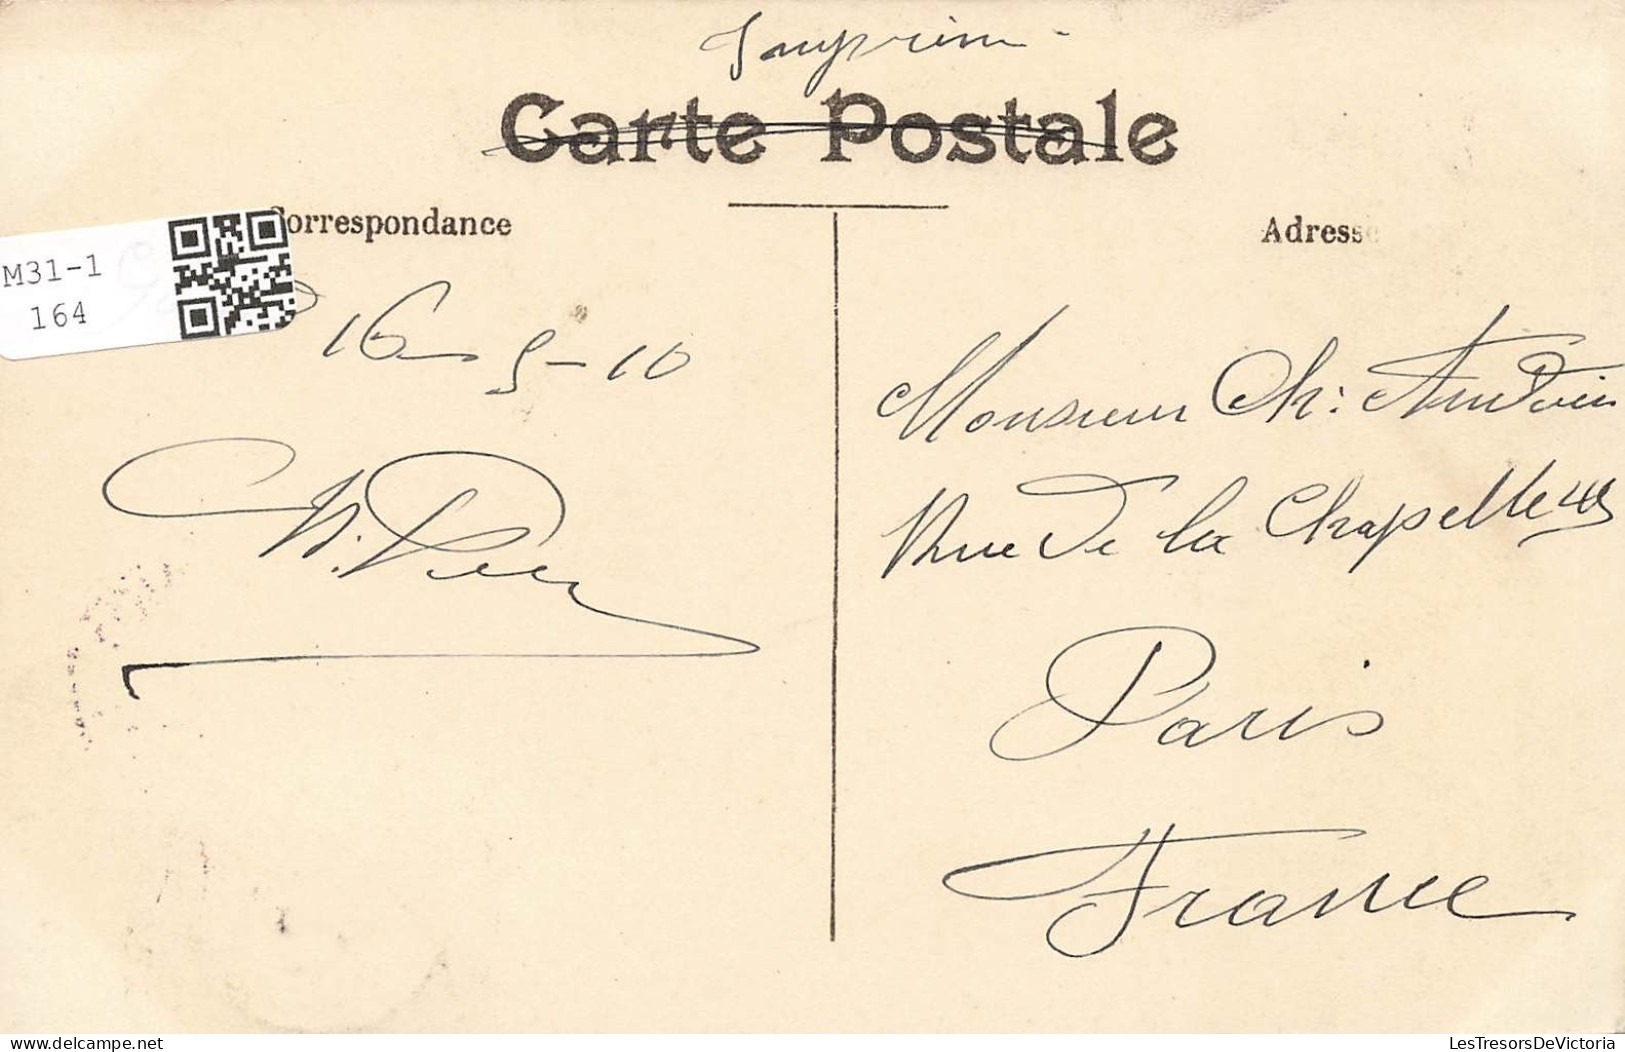 Imprim
Carte Postale
Correspondance
Adresse
M31-1
164
16-5-10
Monsieur Ch: Audoin
Rue De la Chapelle 48
Paris
France
delcampe.net
LesTresorsDeVictoria